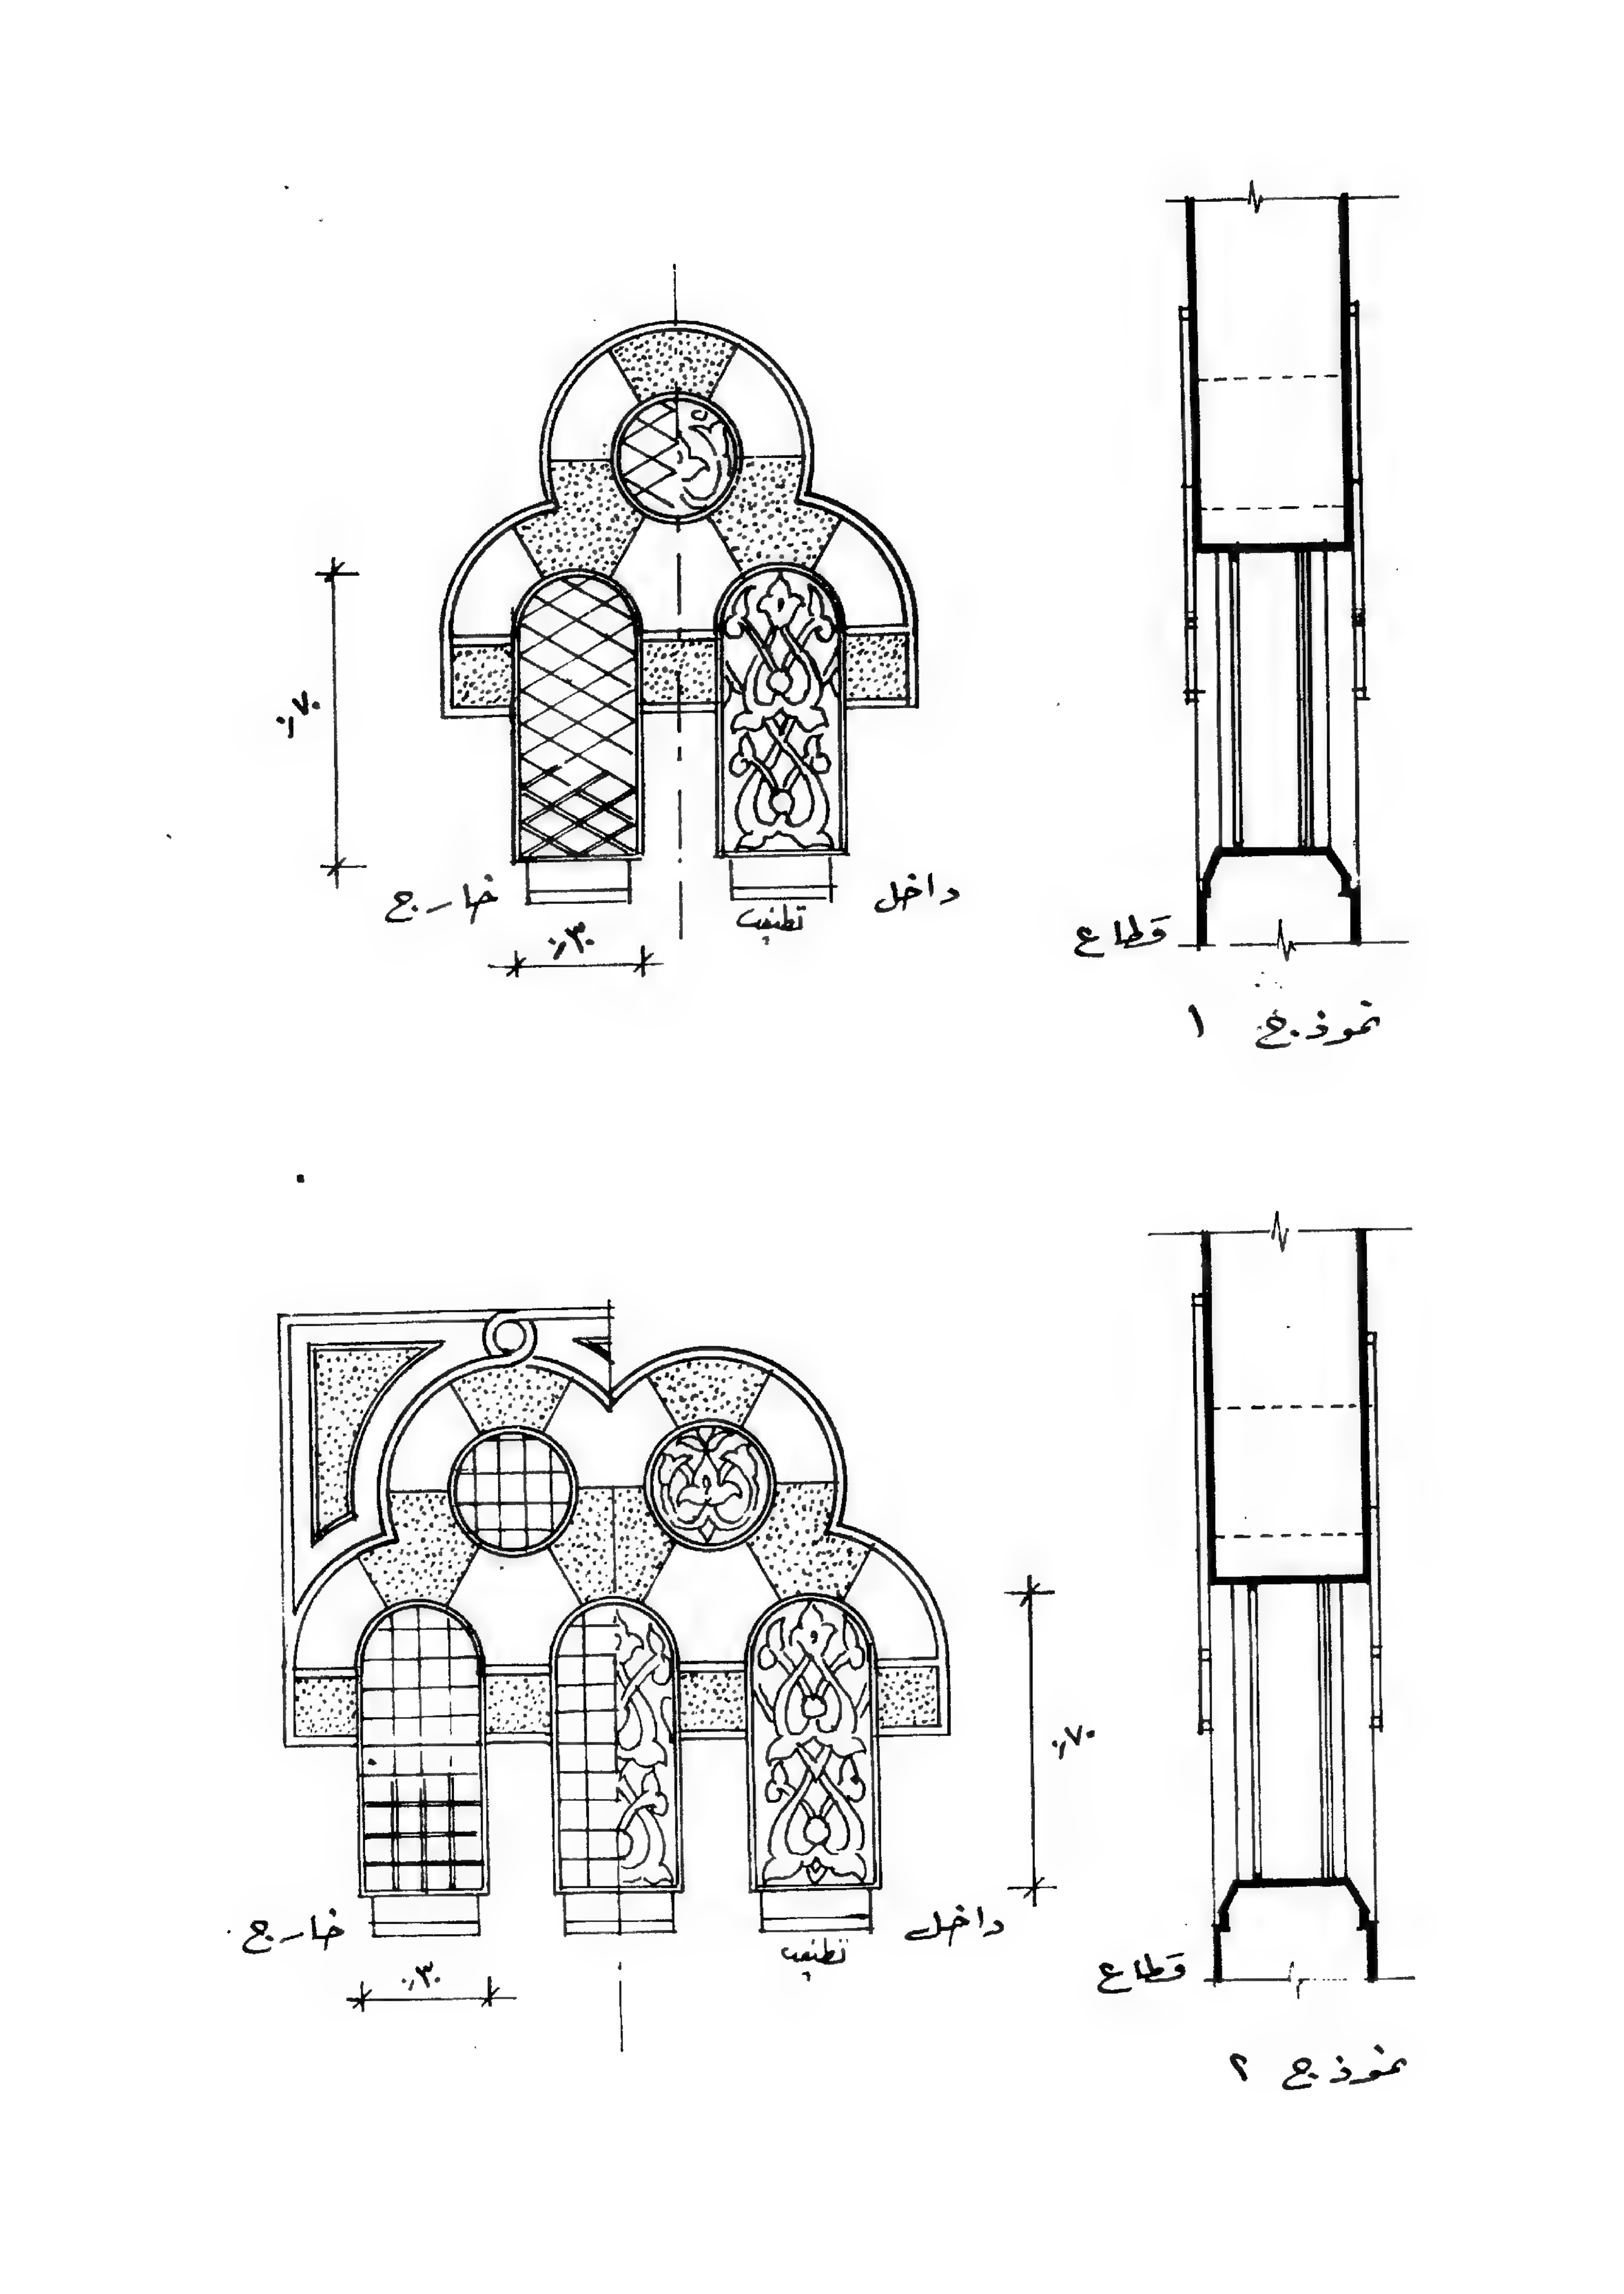 ٫٧٠
خارج
داخل
تطنيب
٫٣٠
قطاع
نموذج ١
٫٧٠
خارج
داخل
تطنيب
٫٣٠
قطاع
نموذج ٢